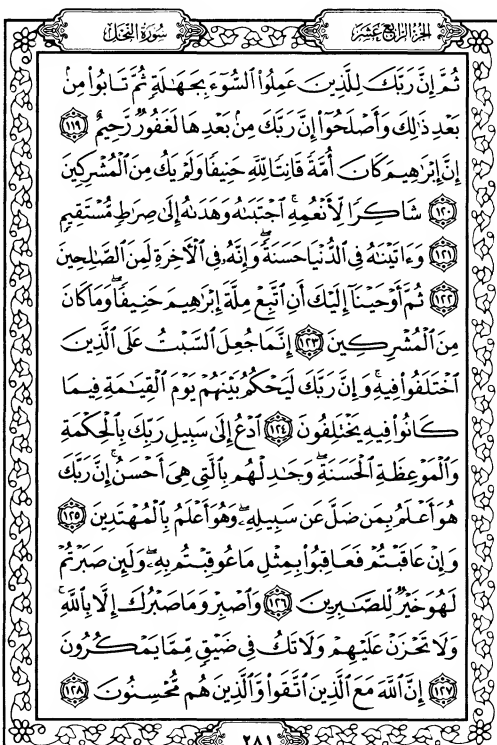 الجزء الرابع عشر
سورة النحل
ثُمَّ إِنَّ رَبَّكَ لِلَّذِينَ عَمِلُوا۟ ٱلسُّوٓءَ بِجَهَٰلَةٍ ثُمَّ تَابُوا۟ مِنۢ
بَعْدِ ذَٰلِكَ وَأَصْلَحُوٓا۟ إِنَّ رَبَّكَ مِنۢ بَعْدِهَا لَغَفُورٌ رَّحِيمٌ ١١٩
إِنَّ إِبْرَٰهِيمَ كَانَ أُمَّةً قَانِتًا لِّلَّهِ حَنِيفًا وَلَمْ يَكُ مِنَ ٱلْمُشْرِكِينَ
١٢٠ شَاكِرًا لِّأَنْعُمِهِ ۚ ٱجْتَبَىٰهُ وَهَدَىٰهُ إِلَىٰ صِرَٰطٍ مُّسْتَقِيمٍ
١٢١ وَءَاتَيْنَٰهُ فِى ٱلدُّنْيَا حَسَنَةً ۖ وَإِنَّهُۥ فِى ٱلْءَاخِرَةِ لَمِنَ ٱلصَّٰلِحِينَ
١٢٢ ثُمَّ أَوْحَيْنَآ إِلَيْكَ أَنِ ٱتَّبِعْ مِلَّةَ إِبْرَٰهِيمَ حَنِيفًا ۖ وَمَا كَانَ
مِنَ ٱلْمُشْرِكِينَ ١٢٣ إِنَّمَا جُعِلَ ٱلسَّبْتُ عَلَى ٱلَّذِينَ
ٱخْتَلَفُوا۟ فِيهِ ۚ وَإِنَّ رَبَّكَ لَيَحْكُمُ بَيْنَهُمْ يَوْمَ ٱلْقِيَٰمَةِ فِيمَا
كَانُوا۟ فِيهِ يَخْتَلِفُونَ ١٢٤ ٱدْعُ إِلَىٰ سَبِيلِ رَبِّكَ بِٱلْحِكْمَةِ
وَٱلْمَوْعِظَةِ ٱلْحَسَنَةِ ۖ وَجَٰدِلْهُم بِٱلَّتِى هِىَ أَحْسَنُ ۚ إِنَّ رَبَّكَ
هُوَ أَعْلَمُ بِمَن ضَلَّ عَن سَبِيلِهِۦ ۖ وَهُوَ أَعْلَمُ بِٱلْمُهْتَدِينَ ١٢٥
وَإِنْ عَاقَبْتُمْ فَعَاقِبُوا۟ بِمِثْلِ مَا عُوقِبْتُم بِهِۦ ۖ وَلَئِن صَبَرْتُمْ
لَهُوَ خَيْرٌ لِّلصَّٰبِرِينَ ١٢٦ وَٱصْبِرْ وَمَا صَبْرُكَ إِلَّا بِٱللَّهِ ۚ
وَلَا تَحْزَنْ عَلَيْهِمْ وَلَا تَكُ فِى ضَيْقٍ مِّمَّا يَمْكُرُونَ
١٢٧ إِنَّ ٱللَّهَ مَعَ ٱلَّذِينَ ٱتَّقَوا۟ وَّٱلَّذِينَ هُم مُّحْسِنُونَ ١٢٨
٢٨١